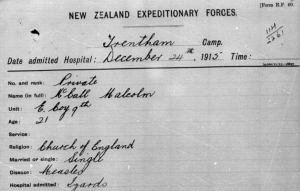 [Form E.F. 60.
NEW ZEALAND EXPEDITIONARY FORCES.
Trentham Camp.
Date admitted Hospital: December 24th, 1915 Time:
No. and rank: Private
Name (in full) McCall Malcolm
Unit: E. Coy 9th
Age: 21
Service:
Religion: Church of England
Married or single: Single
Disease: Measles
Hospital admitted: Izards